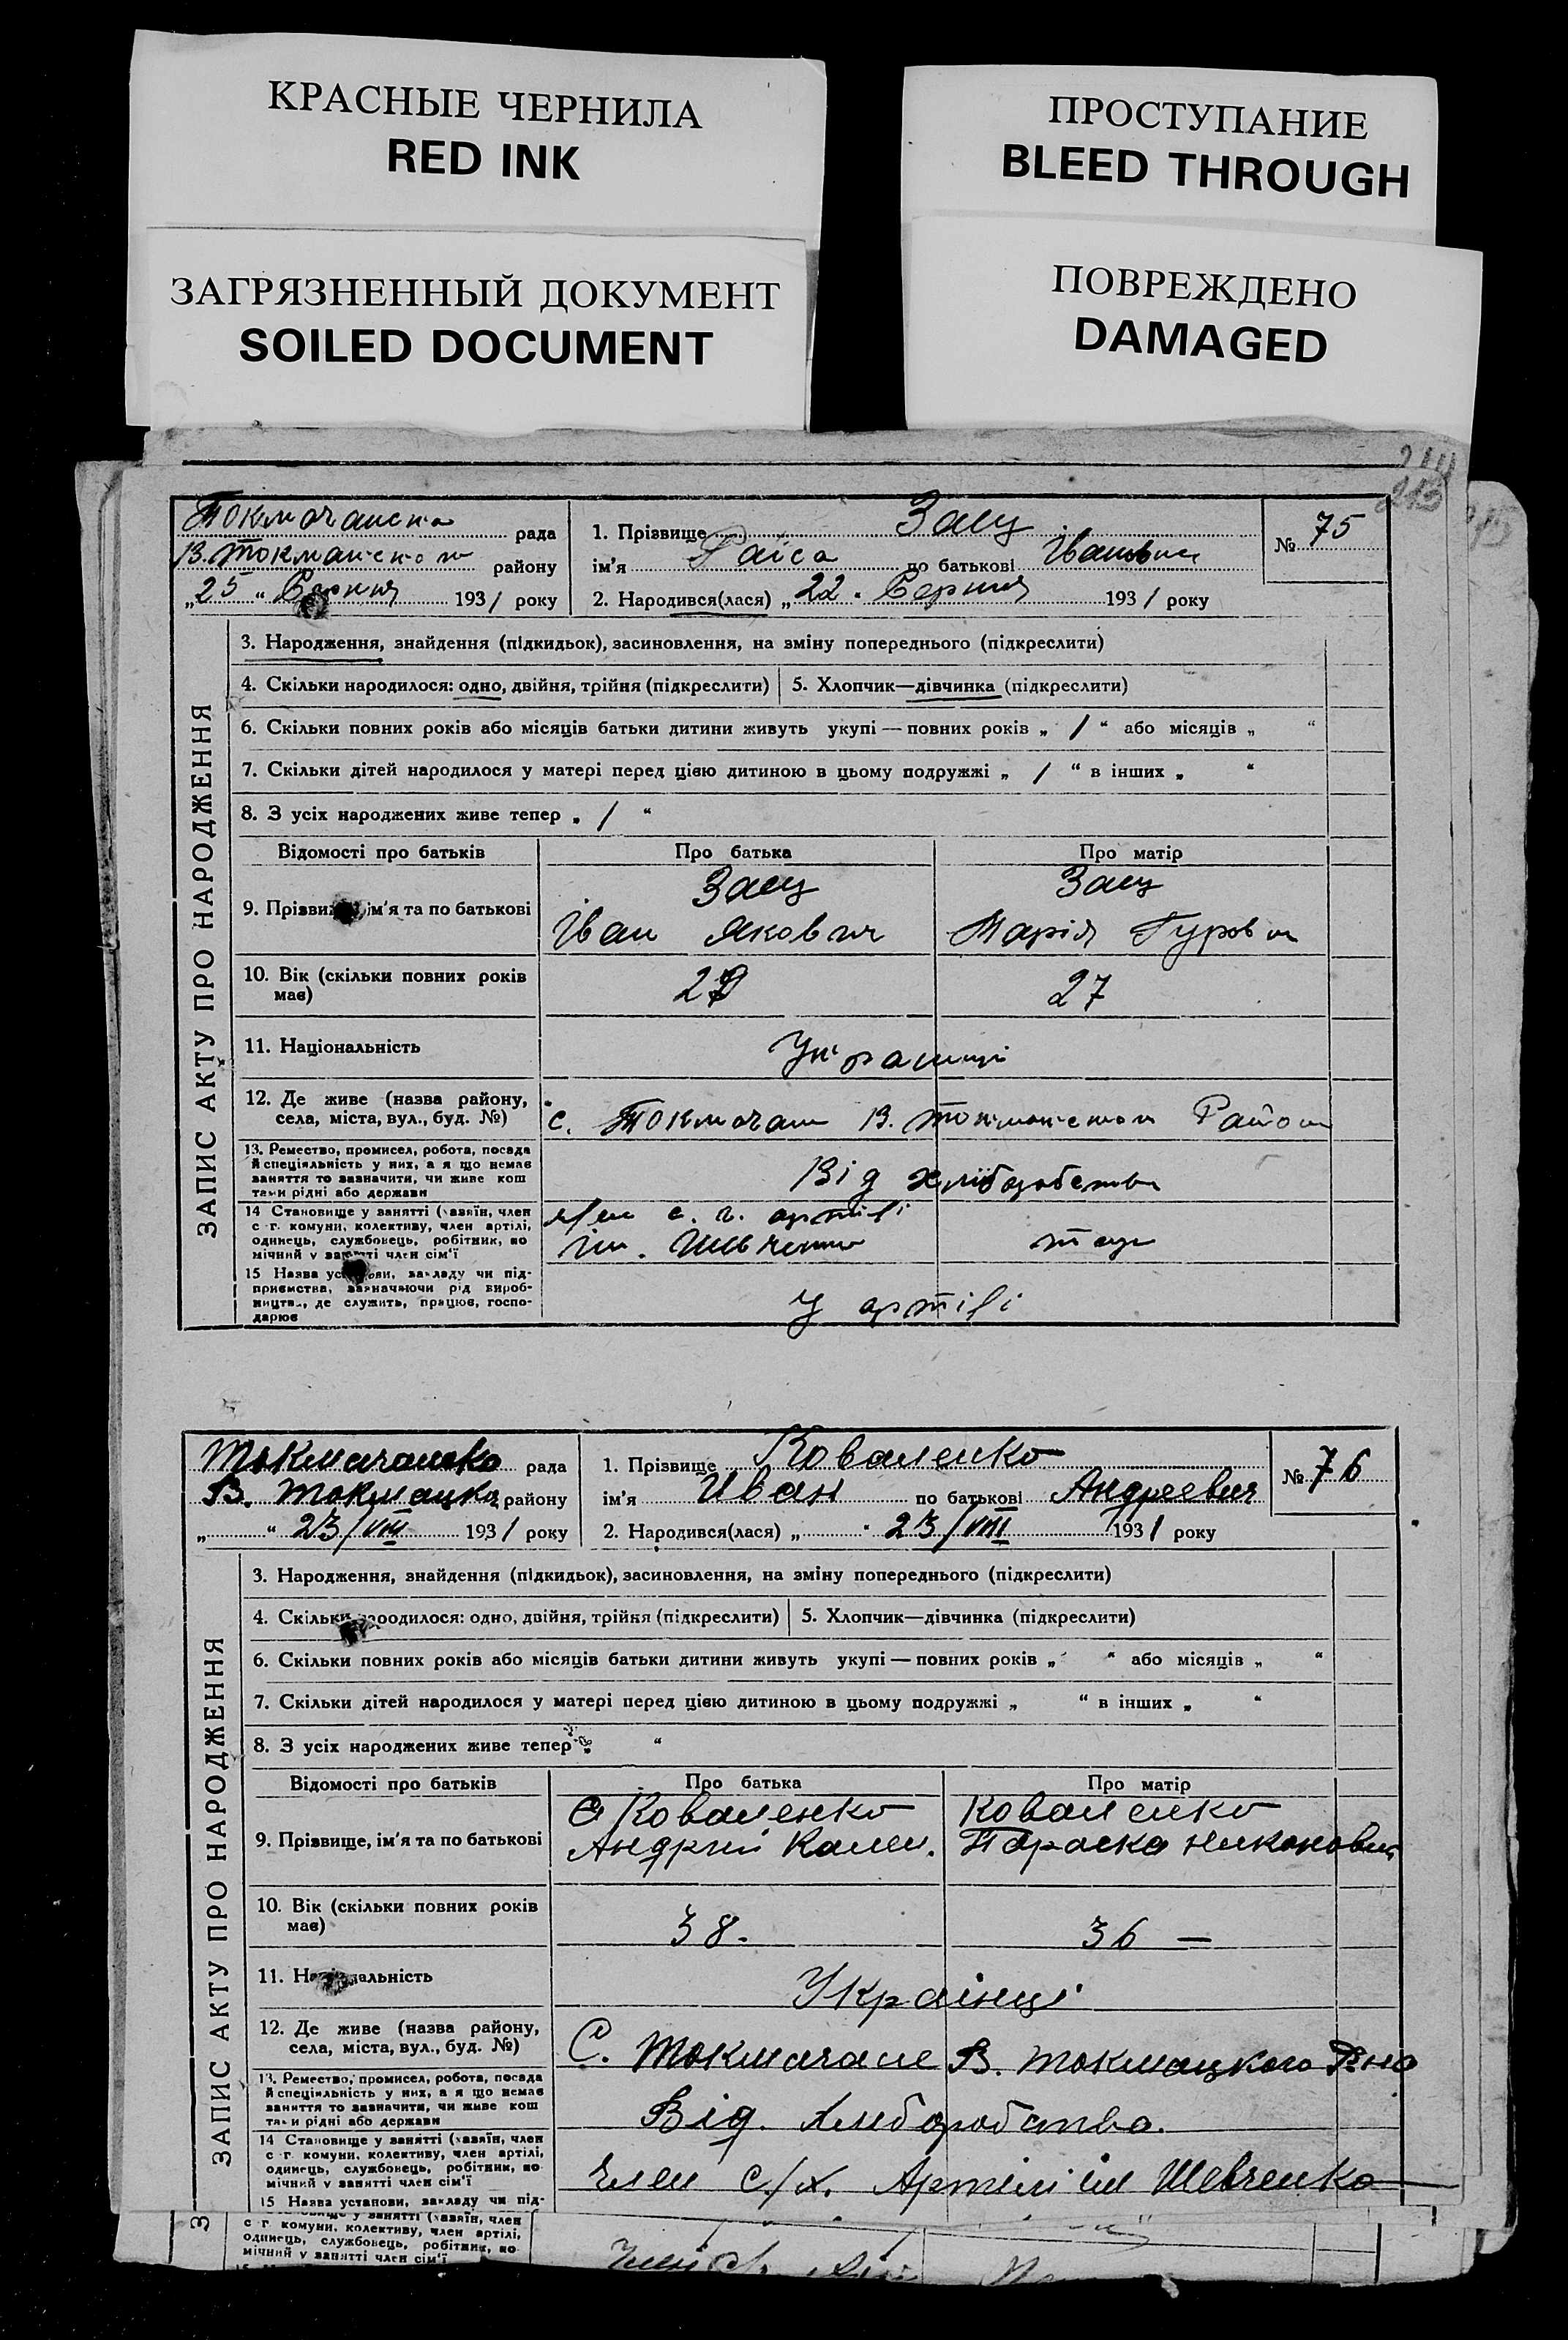 КРАСНЫЕ ЧЕРНИЛА
RED INK
ПРОСТУПАНИЕ
BLEED THROUGH
ЗАГРЯЗНЕННЫЙ ДОКУМЕНТ
SOILED DOCUMENT
ПОВРЕЖДЕНО
DAMAGED
213
рада
1. Прізвище Заєц
№ 75
В. Токмакском району
ім'я Раіса по батькові Івановна
„25“ Серпня 1931 року
2. Народився(лася) „22“ Серпня 1931 року
ЗАПИС АКТУ ПРО НАРОДЖЕННЯ
3. Народження, знайдення (підкидьок), засиновлення, на зміну попереднього (підкреслити)
4. Скільки народилося: одно, двійня, трійня (підкреслити) 5. Хлопчик—дівчинка (підкреслити)
6. Скільки повних років або місяців батьки дитини живуть укупі — повних років „ 1 “ або місяців „ “
7. Скільки дітей народилося у матері перед цією дитиною в цьому подружжі „ 1 “ в інших „ “
8. З усіх народжених живе тепер „ 1 “
Відомості про батьків Про батька Про матір
9. Прізвище, ім'я та по батькові
Заєц Заєц
Іван Якович Марія Гуровн
10. Вік (скільки повних років має)
29 27
11. Національність
Українці
12. Де живе (назва району,
села, міста, вул., буд. №)
с. Токмачан В. Токмакском Район
13. Ремество, промисел, робота, посада
й спеціяльність у них, а я що немає
заняття то зазначити, чи живе кош
тами рідні або держави
Від хліборобства
14 Становище у занятті (хазяїн, член
с г. комуни, колективу, член артілі,
одинець, службовець, робітник, по
мічний у занятті член сім'ї
член с. г. артілі
ім. Шевченко
15 Назва установи, закладу чи під-
приємства, зазначаючи рід вироб-
ництва, де служить, працює, госпо-
дарює
у артілі
рада
1. Прізвище Коваленко
№ 76
В. Токмацко району
ім'я Иван по батькові Андреевич
„ “ 23/VIII 1931 року
2. Народився(лася) „ “ 23/VIII 1931 року
ЗАПИС АКТУ ПРО НАРОДЖЕННЯ
3. Народження, знайдення (підкидьок), засиновлення, на зміну попереднього (підкреслити)
4. Скільки народилося: одно, двійня, трійня (підкреслити) 5. Хлопчик—дівчинка (підкреслити)
6. Скільки повних років або місяців батьки дитини живуть укупі — повних років „ “ або місяців „ “
7. Скільки дітей народилося у матері перед цією дитиною в цьому подружжі „ “ в інших „ “
8. З усіх народжених живе тепер „ “
Відомості про батьків Про батька Про матір
9. Прізвище, ім'я та по батькові
Коваленко Коваленко
Андрий Кален. Параска Никоновна
10. Вік (скільки повних років має)
38. 36 —
11. Національність
Українці
12. Де живе (назва району,
села, міста, вул., буд. №)
С. Токмачане В. Токмацкого Р-на
13. Ремество, промисел, робота, посада
й спеціяльність у них, а я що немає
заняття то зазначити, чи живе кош
тами рідні або держави
Від. Хлиборобства.
14 Становище у занятті (хазяїн, член
с г. комуни, колективу, член артілі,
одинець, службовець, робітник, по
мічний у занятті член сім'ї
Член с/х. Артілі ім Шевченко
15 Назва установи, закладу чи під-
у занятті (хазяїн, член
с г. комуни, колективу, член артілі,
одинець, службовець, робітник, по
мічний у занятті член сім'ї